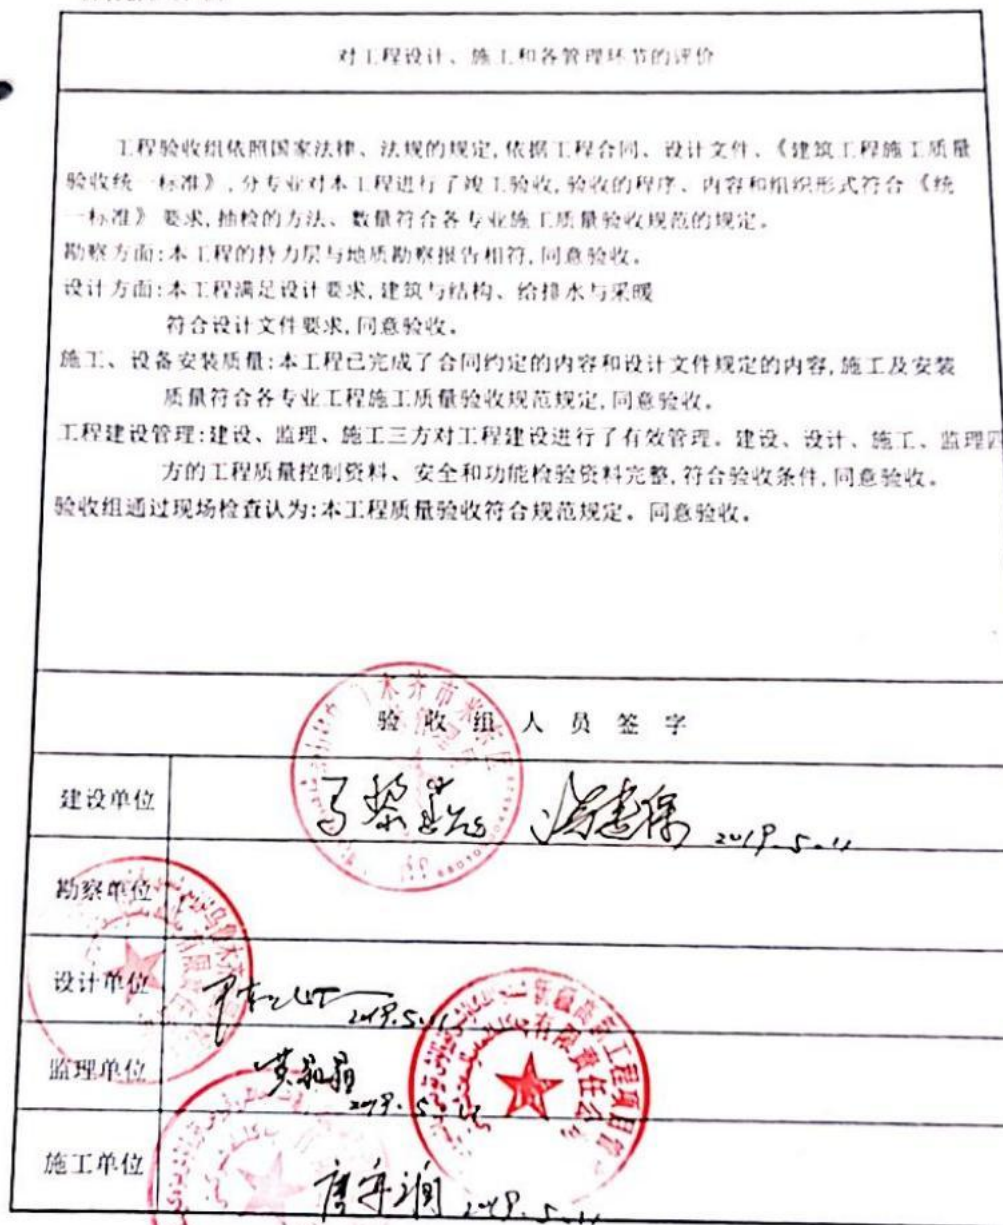 对工程设计、施工和各管理环节的评价
工程验收组依照国家法律、法规的规定,依据工程合同、设计文件、《建筑工程施工质量
验收统一标准》,分专业对本工程进行了竣工验收,验收的程序、内容和组织形式符合《统
一标准》要求,抽检的方法、数量符合各专业施工质量验收规范的规定。
勘察方面:本工程的持力层与地质勘察报告相符,同意验收。
设计方面:本工程满足设计要求,建筑与结构、给排水与采暖
符合设计文件要求,同意验收。
施工、设备安装质量:本工程已完成了合同约定的内容和设计文件规定的内容,施工及安装
质量符合各专业工程施工质量验收规范规定,同意验收。
工程建设管理:建设、监理、施工三方对工程建设进行了有效管理。建设、设计、施工、监理四
方的工程质量控制资料、安全和功能检验资料完整,符合验收条件,同意验收。
验收组通过现场检查认为:本工程质量验收符合规范规定。同意验收。
木齐市米东区
验收组人员签字
建设单位
2019.5.11
勘察单位
乌鲁木齐
有限责任
设计单位
2019.5.11
工程项目管
有限责任公
监理单位
2019.5.11
施工单位
2019.5.11